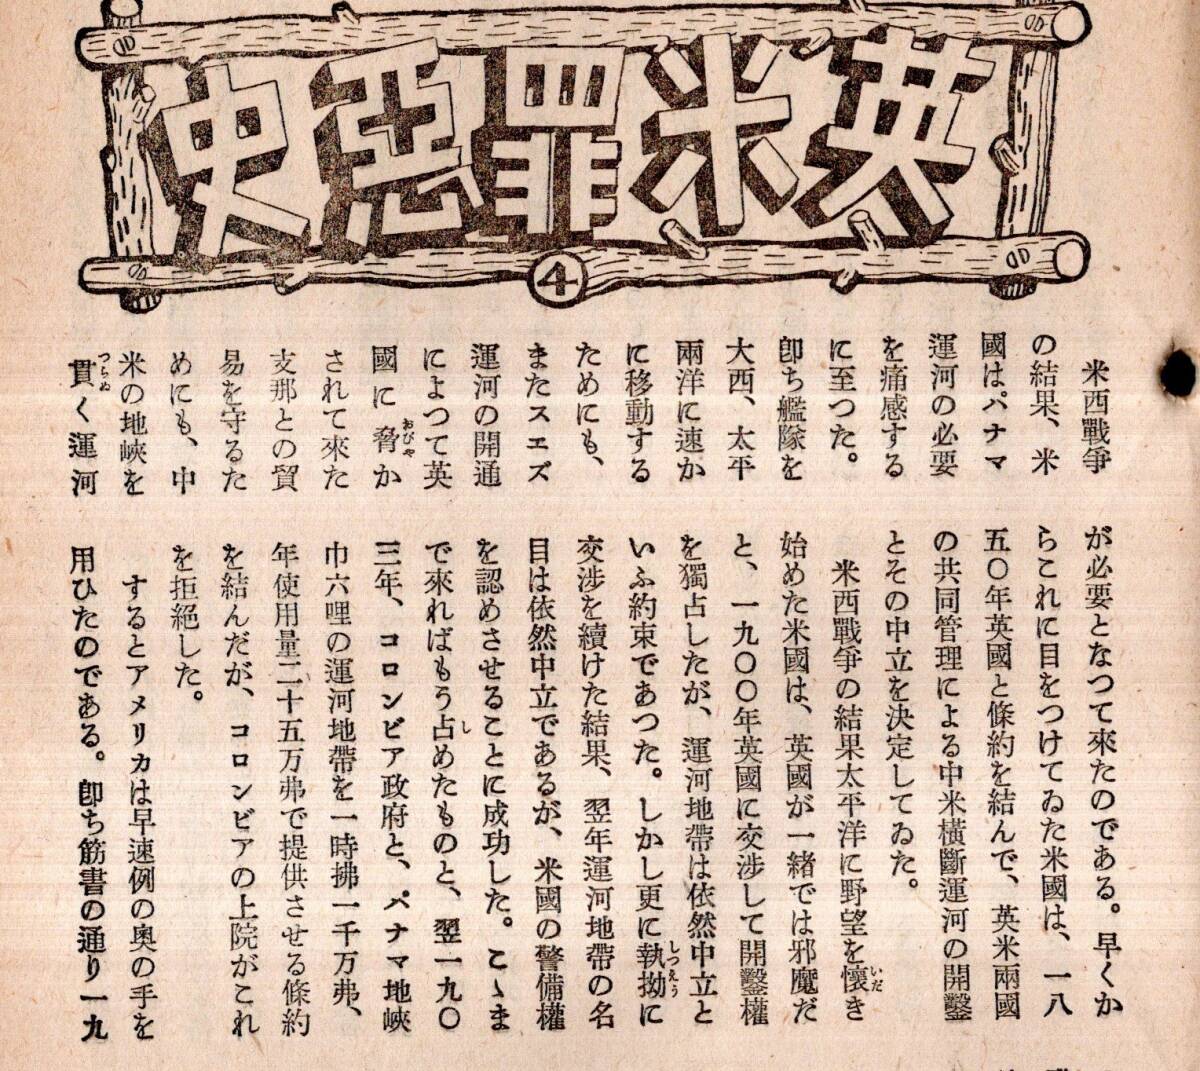 英米罪惡史
4
米西戰爭
の結果、米
國はパナマ
運河の必要
を痛感する
に至つた。
卽ち艦隊を
大西、太平
兩洋に速か
に移動する
ためにも、
またスエズ
運河の開通
によつて英
國に脅おびやか
されて來た
支那との貿
易を守るた
めにも、中
米の地峽を
貫つらぬく運河
が必要となつて來たのである。早くか
らこれに目をつけてゐた米國は、一八
五〇年英國と條約を結んで、英米兩國
の共同管理による中米橫斷運河の開鑿
とその中立を決定してゐた。
米西戰爭の結果太平洋に野望を懷いだき
始めた米國は、英國が一緒では邪魔だ
と、一九〇〇年英國に交涉して開鑿權
を獨占したが、運河地帶は依然中立と
いふ約束であつた。しかし更に執拗しつえうに
交涉を續けた結果、翌年運河地帶の名
目は依然中立であるが、米國の警備權
を認めさせることに成功した。こゝま
で來ればもう占しめたものと、翌一九〇
三年、コロンビア政府と、パナマ地峽
巾六哩の運河地帶を一時拂一千万弗、
年使用量二十五万弗で提供させる條約
を結んだが、コロンビアの上院がこれ
を拒絕した。
するとアメリカは早速例の奧の手を
用ひたのである。卽ち筋書の通り一九